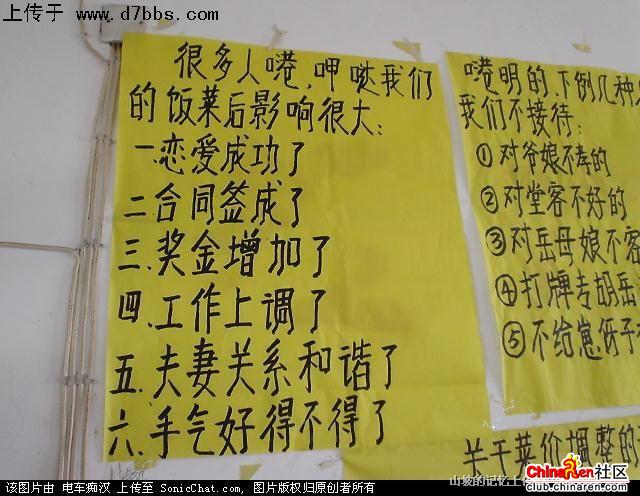 上传于
www.d7bbs.com
很多人嗯，呷哒我们
的饭菜后影响很大：
一.恋爱成功了
二.合同签成了
三.奖金增加了
四.工作上调了
五.夫妻关系和谐了
六.手气好得不得了
明的,下例几种
我们不接待：
①对爷娘不孝的
②对堂客不好的
③对岳母娘不客
④打牌专胡岳
⑤不给崽伢子
关于菜价调整的
该图片由 电车痴汉 上传至 SonicChat.com, 图片版权归原创者所有
山坡的记忆上
ChinaRen社区
club.chinaren.com